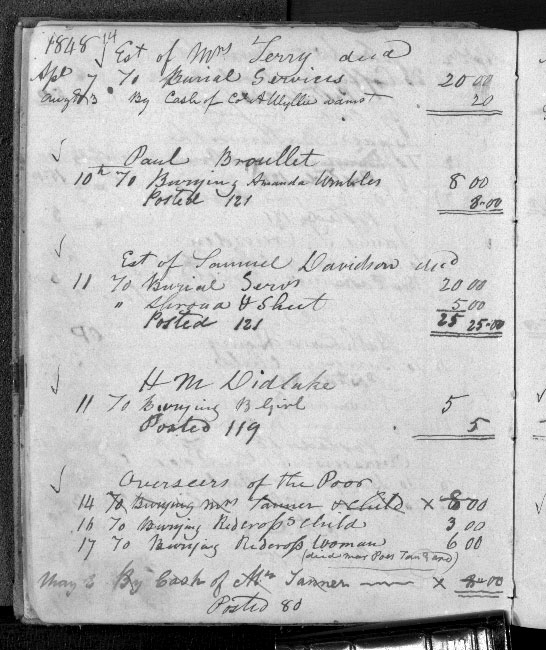 1848
Est of Mrs Terry decd
Apl 7 To Burial Services 20 00
Augt 3 By Cash of Col A Wyllie admst 20
Paul Broullet
10th To Burying Amanda 8 00
Posted 121 8-00
Est of Samuel Davidson decd
11 To Burial Servs 20 00
" Shroud & Sheet 5 00
Posted 121 25 25-00
H M Didlake
11 To Burying B Girl 5
Posted 119 5
Overseers of the Poor
14 To Burying Mrs Tanner & Child × 8 00
16 To Burying Redcross Child 3 00
17 To Burying Redcross Woman 6 00
(died near Poss Tan Yard)
May 3 By Cash of Mr Tanner × 8-00
Posted 80